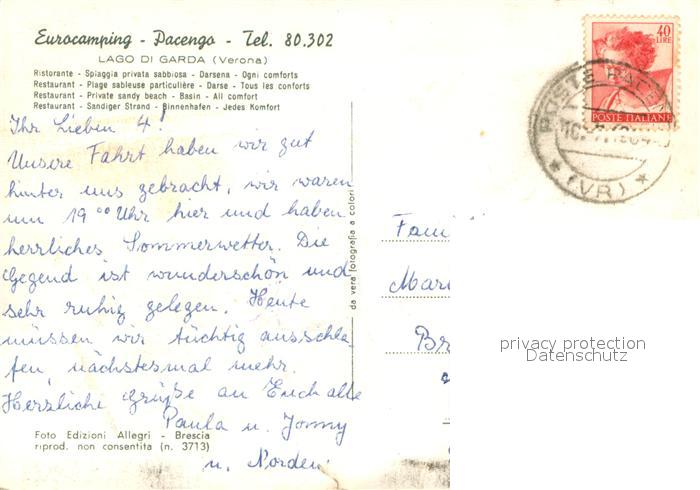 Eurocamping - Pacengo - Tel. 80.302
LAGO DI GARDA (Verona)
Ristorante - Spiaggia privata sabbiosa - Darsena - Ogni comforts
Restaurant - Plage sableuse particulière - Darse - Tous les conforts
Restaurant - Private sandy beach - Basin - All comfort
Restaurant - Sandiger Strand - Binnenhafen - Jedes Komfort
Ihr Lieben 4!
Unsere Fahrt haben wir gut
hinter uns gebracht, wir waren
um 19 00 Uhr hier und haben
herrliches Sommerwetter. Die
Gegend ist wunderschön und
sehr ruhig gelegen. Heute
müssen wir tüchtig ausschla-
fen, nächstesmal mehr.
Herzliche Grüße an Euch alle
Paula u. Jonny
u. Norden
Foto Edizioni Allegri - Brescia
riprod. non consentita (n. 3713)
da vera fotografia a colori
40
LIRE
POSTE ITALIANE
POSTE PACEN
(VR)
Fami
Mari
Br
privacy protection
Datenschutz